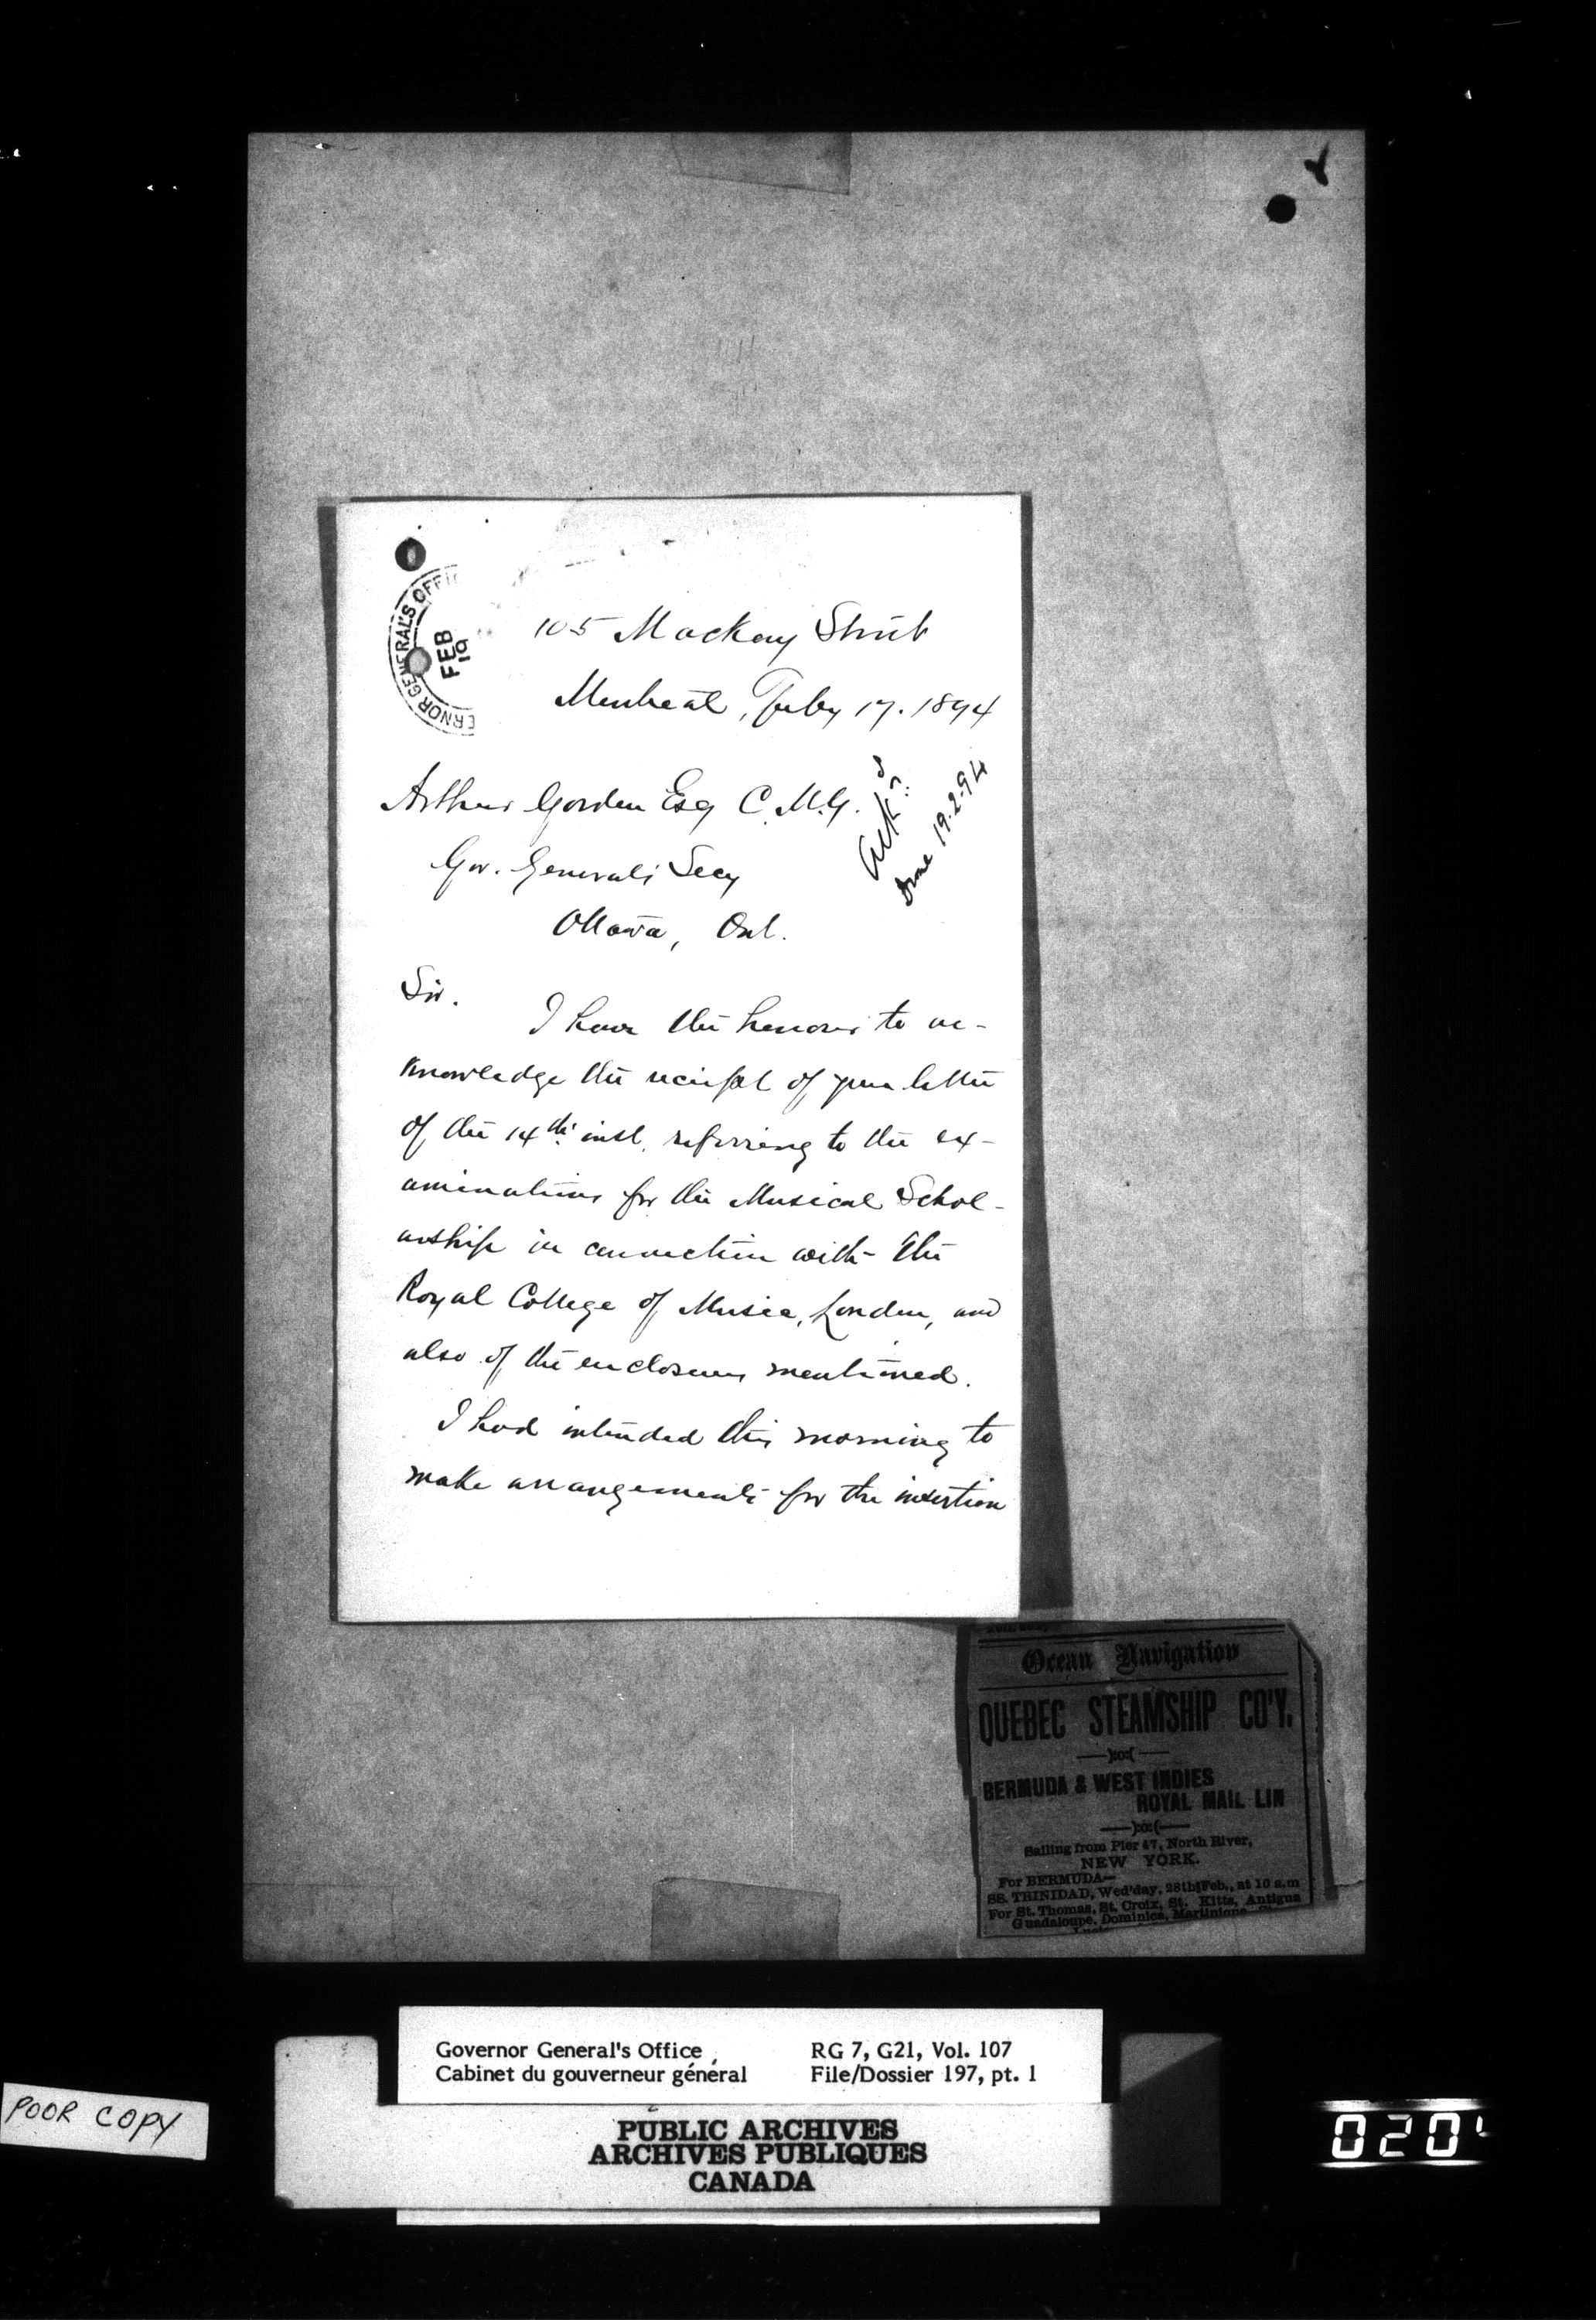 GOVERNOR GENERAL'S OFFIC
FEB
19
105 Mackay Street
Montreal, Feby 17. 1894
Arthur Gordon Esq C.M.G.
Gov. Generals Secy
Ottawa, Ont.
Ackd
Done 19.2.94
Sir.
I have the honour to ac-
knowledge the receipt of your letter
of the 14th inst. referring to the ex-
aminations for the Musical Schol-
arship in connection with the
Royal College of Music, London, and
also of the enclosures mentioned.
I had intended this morning to
make arrangements for the insertion
Ocean Navigation
QUEBEC STEAMSHIP CO'Y.
BERMUDA & WEST INDIES
ROYAL MAIL LIN
Sailing from Pier 47, North River,
NEW YORK.
For BERMUDA—
SS. TRINIDAD, Wed'day, 28th Feb., at 10 a.m
For St. Thomas, St. Croix, St. Kitts, Antigua
Guadaloupe, Dominica, Martinique
Governor General's Office
Cabinet du gouverneur général
RG 7, G21, Vol. 107
File/Dossier 197, pt. 1
PUBLIC ARCHIVES
ARCHIVES PUBLIQUES
CANADA
POOR COPY
020